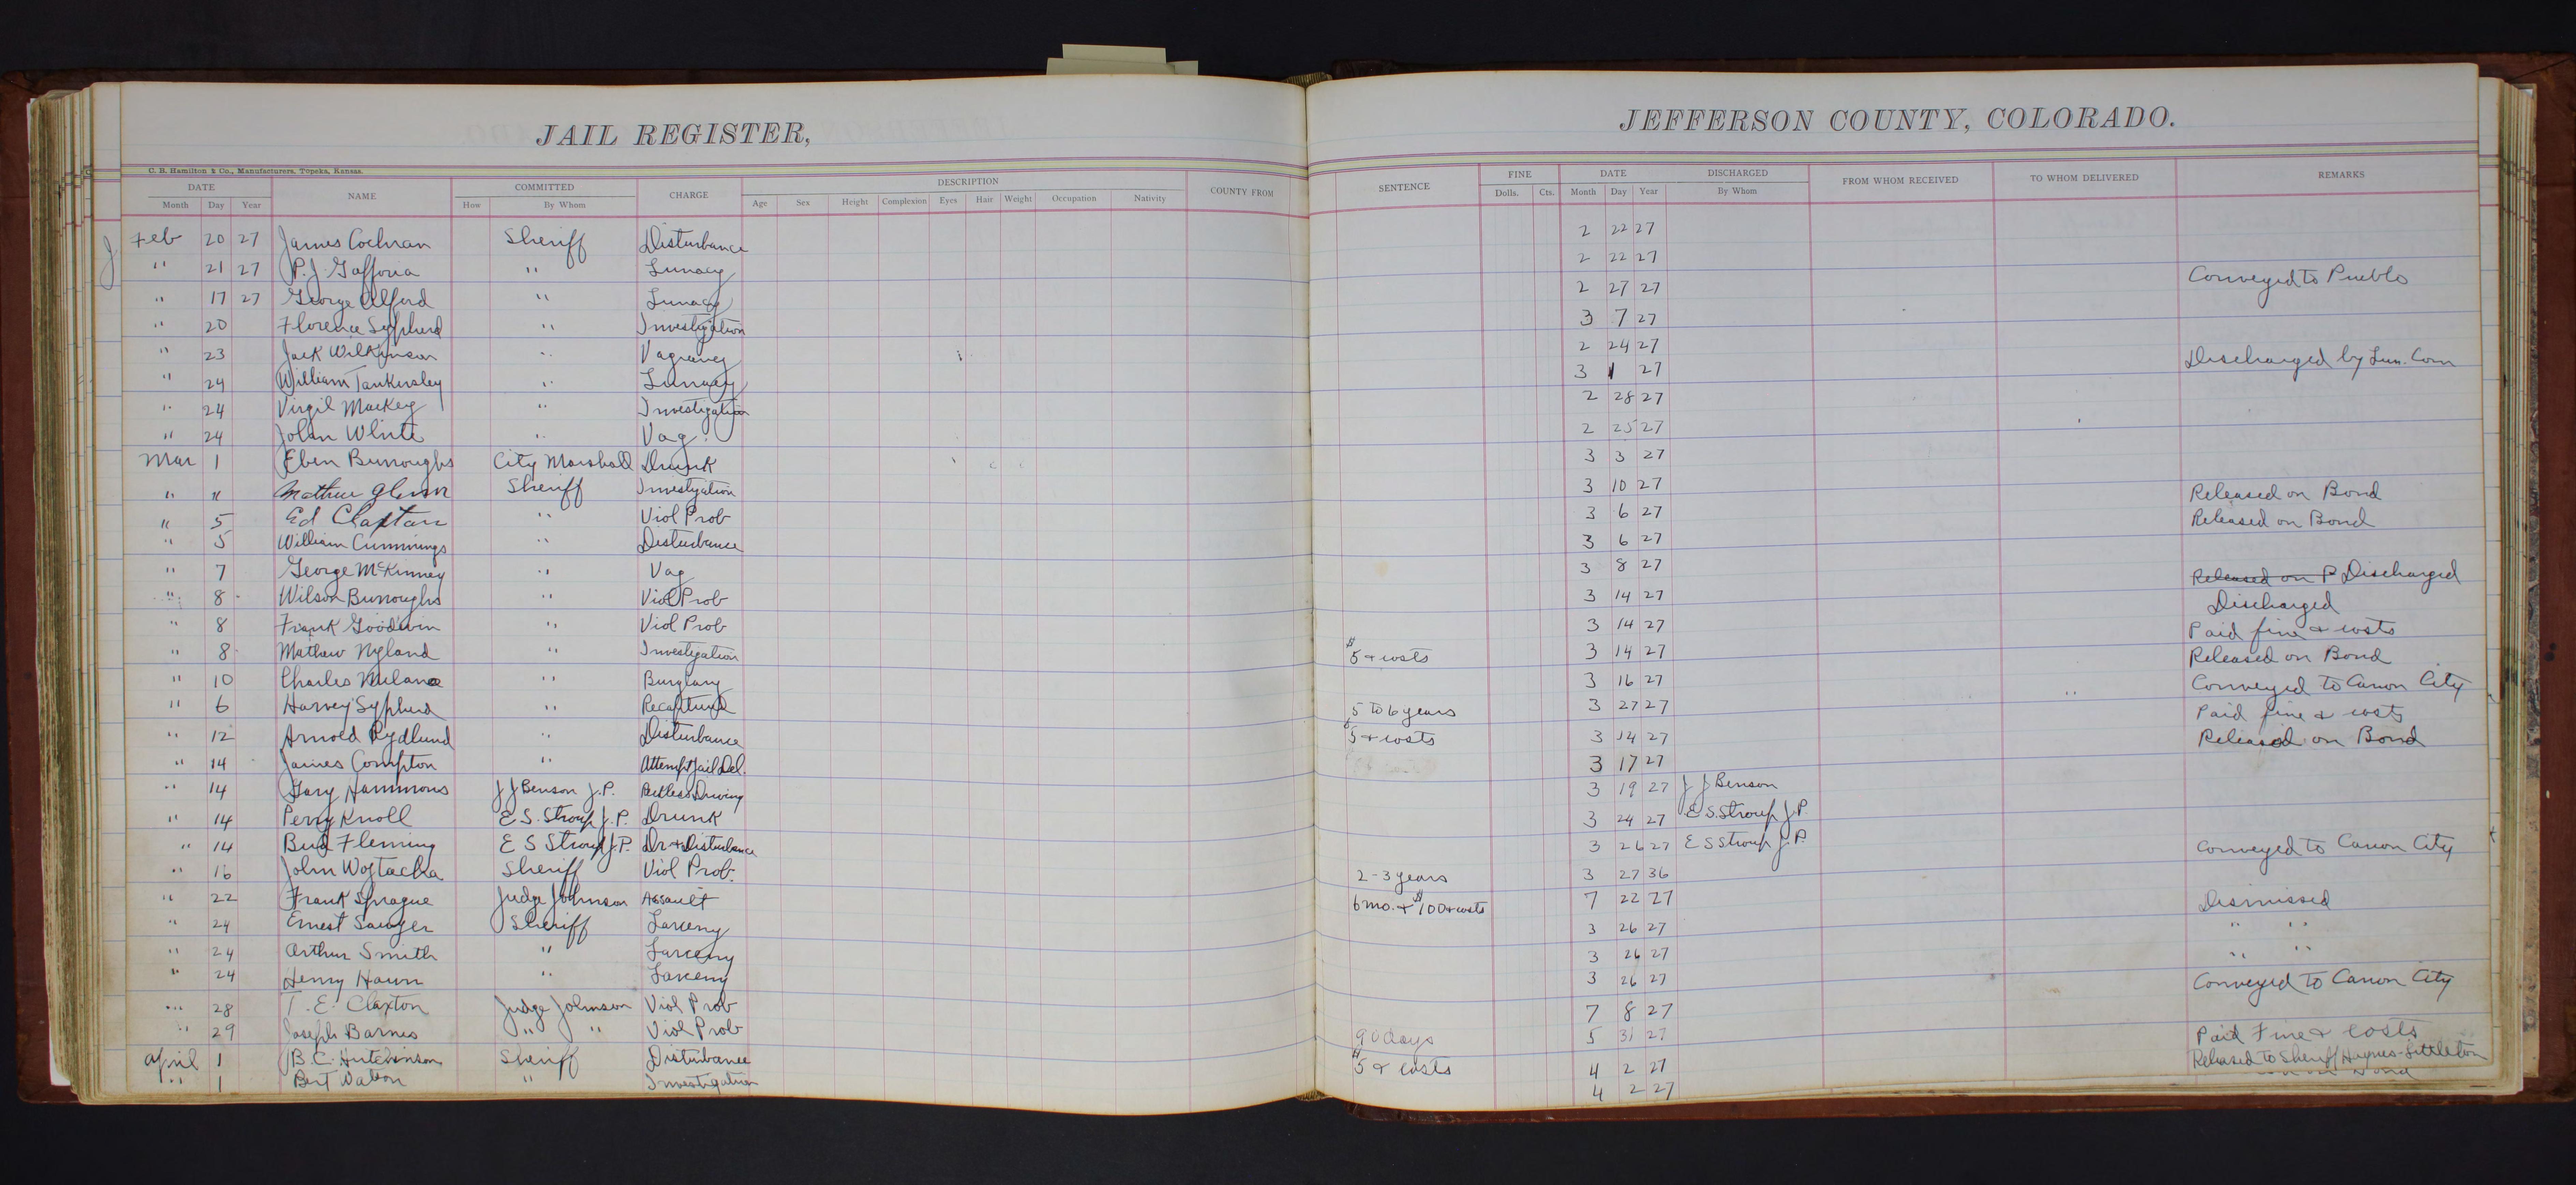 JAIL REGISTER,
JEFFERSON COUNTY, COLORADO.
C. B. Hamilton & Co., Manufacturers, Topeka, Kansas.
DATE NAME COMMITTED CHARGE DESCRIPTION COUNTY FROM SENTENCE FINE DATE DISCHARGED FROM WHOM RECEIVED TO WHOM DELIVERED REMARKS
Month Day Year How By Whom Age Sex Height Complexion Eyes Hair Weight Occupation Nativity Dolls. Cts. Month Day Year By Whom
Feb 20 27 James Cochran Sheriff Disturbance 2 22 27
" 21 27 P. J. Gafforia " Lunacy 2 22 27 Conveyed to Pueblo
" 17 27 George Alford " Lunacy 2 27 27
" 20 Florence Sypherd " Investigation 3 7 27
" 23 Jack Wilkinson " Vagrancy 2 24 27 Discharged by Lun. Com
" 24 William Tankersley " Lunacy 3 1 27
" 24 Virgil Mackey " Investigation 2 28 27
" 24 John White " Vag. 2 25 27
Mar 1 Eben Burroughs City Marshall Drunk 3 3 27
" " Mathew Sheriff Investigation 3 10 27 Released on Bond
" 5 Ed Claxton " Viol Prob 3 6 27 Released on Bond
" 5 William Cummings " Disturbance 3 6 27
" 7 George McKinney " Vag 3 8 27 Released on P Discharged
" 8 Wilson Burroughs " Viol Prob 3 14 27 Discharged
" 8 Frank Goodwin " Viol Prob 3 14 27 Paid fine & costs
" 8 Mathew Nyland " Investigation $5 & costs 3 14 27 Released on Bond
" 10 Charles Milano " Burglary 3 16 27 Conveyed to Canon City
" 6 Harvey Sypherd " Recaptured 5 to 6 years 3 27 27 Paid fine & costs
" 12 Arnold Rydlund " Disturbance $5 & costs 3 14 27 Released on Bond
" 14 James Compton " Attempt Jail Del. 3 17 27
" 14 Gary Hammons J J Benson J.P. Reckless Driving 3 19 27 J J Benson
" 14 Perry Knoll E S. Stroup J.P. Drunk 3 24 27 E S. Stroup J.P.
" 14 Bud Fleming E S Stroup J.P. Dr. & Disturbance 3 26 27 E S Stroup J.P. Conveyed to Canon City
" 16 John Wojtacha Sheriff Viol Prob. 2-3 years 3 27 36
" 22 Frank Sprague Judge Johnson Assault 6 mo. & $100 & costs 7 22 27 Dismissed
" 24 Ernest Sawyer Sheriff Larceny 3 26 27 " "
" 24 Arthur Smith " Larceny 3 26 27 " "
" 24 Henry Hawn " Larceny 3 26 27 Conveyed to Canon City
" 28 T. E. Claxton Judge Johnson Viol Prob 7 8 27
" 29 Joseph Barnes " " Viol Prob 90 days 5 31 27 Paid Fine & Costs
April 1 B. C. Hutchinson Sheriff Disturbance $5 & costs 4 2 27 Released to Sheriff Haynes-Littleton
" 1 Bert Watson " Investigation 4 2 27